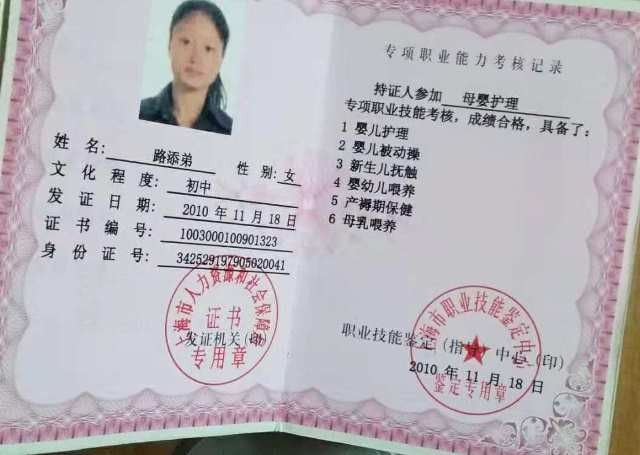 姓名：路添弟 性别：女
文化程度：初中
发证日期：2010 年 11 月 18 日
证书编号：1003000100901323
身份证号：342529197905020041
上海市人力资源和社会保障局
证书
发证机关（印）
专用章
专项职业能力考核记录
持证人参加 母婴护理
专项职业技能考核，成绩合格，具备了：
1 婴儿护理
2 婴儿被动操
3 新生儿抚触
4 婴幼儿喂养
5 产褥期保健
6 母乳喂养
上海市职业技能鉴定中心
职业技能鉴定（指导）中心（印）
2010 年 11 月 18 日
鉴定专用章